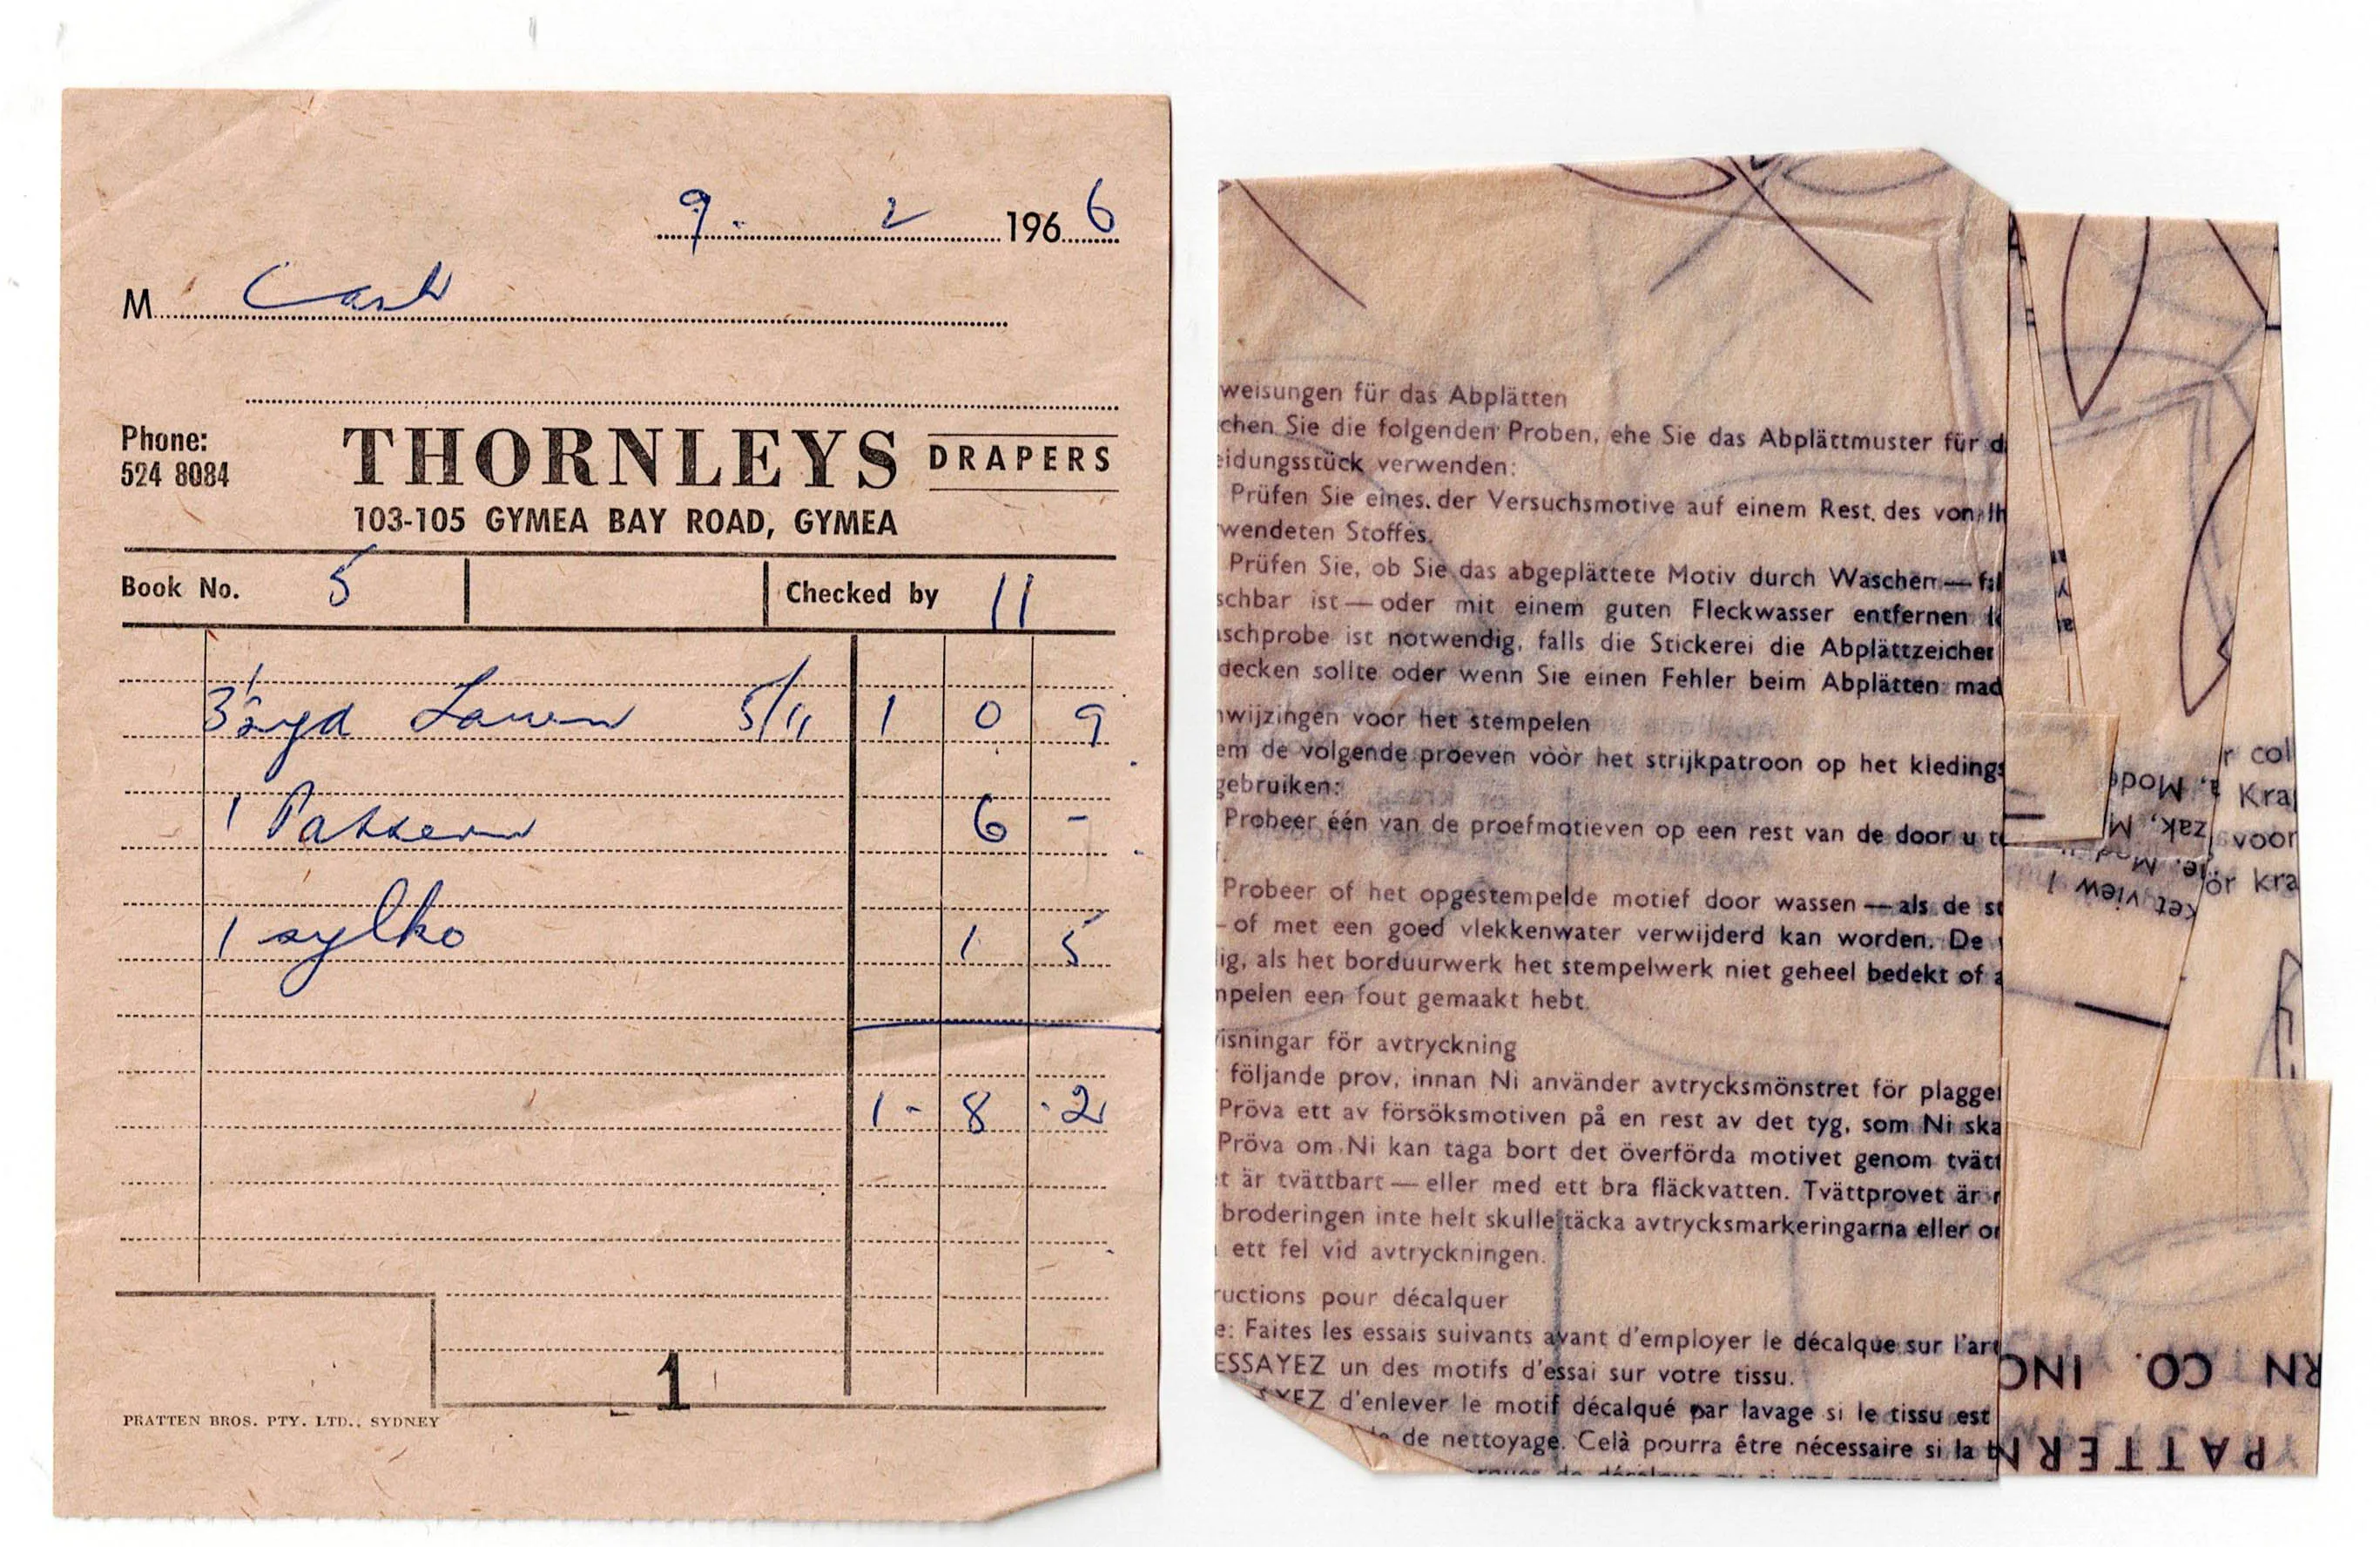 9. 2 1966
M Cash
Phone:
524 8084
THORNLEYS DRAPERS
103-105 GYMEA BAY ROAD, GYMEA
Book No. 5 Checked by 11
3½ yd Lawn 5/11 1 0 9
1 Pattern 6 -
1 sylko 1 5
1 - 8 - 2
1
PRATTEN BROS. PTY. LTD., SYDNEY
weisungen für das Abplätten
chen Sie die folgenden Proben, ehe Sie das Abplättmuster für d
eidungsstück verwenden:
Prüfen Sie eines der Versuchsmotive auf einem Rest des von Ih
wendeten Stoffes.
Prüfen Sie, ob Sie das abgeplättete Motiv durch Waschen — fal
schbar ist — oder mit einem guten Fleckwasser entfernen l
aschprobe ist notwendig, falls die Stickerei die Abplättzeichen
decken sollte oder wenn Sie einen Fehler beim Abplätten mad
nwijzingen voor het stempelen
em de volgende proeven vòòr het strijkpatroon op het kledings
gebruiken:
Probeer één van de proefmotieven op een rest van de door u te
Probeer of het opgestempelde motief door wassen — als de st
– of met een goed vlekkenwater verwijderd kan worden. De
ig, als het borduurwerk het stempelwerk niet geheel bedekt of a
npelen een fout gemaakt hebt.
isningar för avtryckning
följande prov, innan Ni använder avtrycksmönstret för plagget
Pröva ett av försöksmotiven på en rest av det tyg, som Ni ska
Pröva om Ni kan taga bort det överförda motivet genom tvätt
t är tvättbart — eller med ett bra fläckvatten. Tvättprovet är n
broderingen inte helt skulle täcka avtrycksmarkeringarna eller or
ett fel vid avtryckningen.
ructions pour décalquer
e: Faites les essais suivants avant d'employer le décalque sur l'art
ESSAYEZ un des motifs d'essai sur votre tissu.
YEZ d'enlever le motif décalqué par lavage si le tissu est
de nettoyage. Celà pourra être nécessaire si la b
r col
Kra
voor
ör kra
a, Mod
zak, M
ie, Mod
ket view 1
RN CO. INC
PATTERN